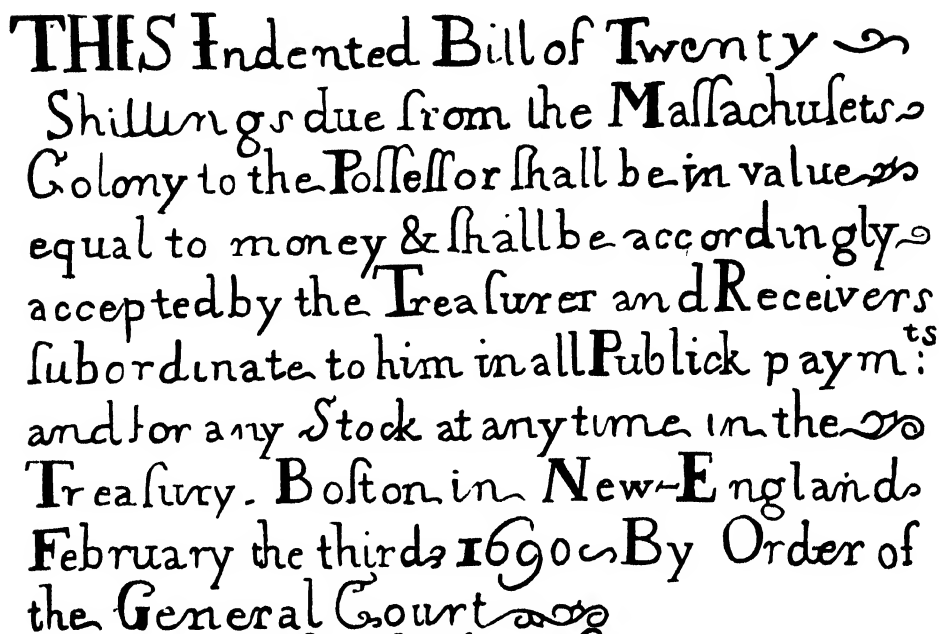 THIS Indented Bill of Twenty
Shillings due from the Maſſachuſets
Colony to the Poſſeſſor ſhall be in value
equal to money & ſhall be accordingly
accepted by the Treaſurer and Receivers
ſubordinate to him in all Publick paymᵗˢ:
and for any Stock at any time in the
Treaſury. Boſton in New-England
February the third 1690 By Order of
the General Court